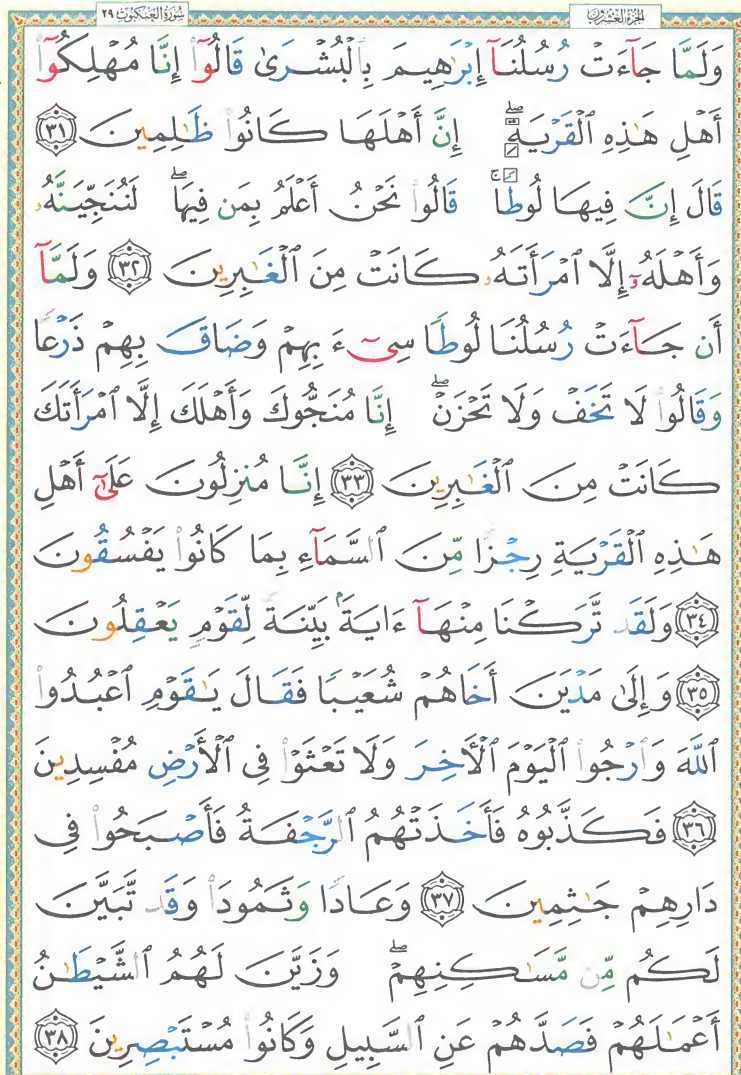 سُورَةُ العَنكبُوت ٢٩
الجُزءُ العِشْرُون
وَلَمَّا جَآءَتْ رُسُلُنَآ إِبْرَٰهِيمَ بِٱلْبُشْرَىٰ قَالُوٓا۟ إِنَّا مُهْلِكُوٓا۟
أَهْلِ هَٰذِهِ ٱلْقَرْيَةِۖ إِنَّ أَهْلَهَا كَانُوا۟ ظَٰلِمِينَ ﴿٣١﴾
قَالَ إِنَّ فِيهَا لُوطًاۚ قَالُوا۟ نَحْنُ أَعْلَمُ بِمَن فِيهَاۖ لَنُنَجِّيَنَّهُۥ
وَأَهْلَهُۥٓ إِلَّا ٱمْرَأَتَهُۥ كَانَتْ مِنَ ٱلْغَٰبِرِينَ ﴿٣٢﴾ وَلَمَّآ
أَن جَآءَتْ رُسُلُنَا لُوطًا سِىٓءَ بِهِمْ وَضَاقَ بِهِمْ ذَرْعًا
وَقَالُوا۟ لَا تَخَفْ وَلَا تَحْزَنْۖ إِنَّا مُنَجُّوكَ وَأَهْلَكَ إِلَّا ٱمْرَأَتَكَ
كَانَتْ مِنَ ٱلْغَٰبِرِينَ ﴿٣٣﴾ إِنَّا مُنزِلُونَ عَلَىٰٓ أَهْلِ
هَٰذِهِ ٱلْقَرْيَةِ رِجْزًا مِّنَ ٱلسَّمَآءِ بِمَا كَانُوا۟ يَفْسُقُونَ
﴿٣٤﴾ وَلَقَد تَّرَكْنَا مِنْهَآ ءَايَةًۢ بَيِّنَةً لِّقَوْمٍ يَعْقِلُونَ
﴿٣٥﴾ وَإِلَىٰ مَدْيَنَ أَخَاهُمْ شُعَيْبًا فَقَالَ يَٰقَوْمِ ٱعْبُدُوا۟
ٱللَّهَ وَٱرْجُوا۟ ٱلْيَوْمَ ٱلْأَخِرَ وَلَا تَعْثَوْا۟ فِى ٱلْأَرْضِ مُفْسِدِينَ
﴿٣٦﴾ فَكَذَّبُوهُ فَأَخَذَتْهُمُ ٱلرَّجْفَةُ فَأَصْبَحُوا۟ فِى
دَارِهِمْ جَٰثِمِينَ ﴿٣٧﴾ وَعَادًا وَثَمُودَا۟ وَقَد تَّبَيَّنَ
لَكُم مِّن مَّسَٰكِنِهِمْۖ وَزَيَّنَ لَهُمُ ٱلشَّيْطَٰنُ
أَعْمَٰلَهُمْ فَصَدَّهُمْ عَنِ ٱلسَّبِيلِ وَكَانُوا۟ مُسْتَبْصِرِينَ ﴿٣٨﴾